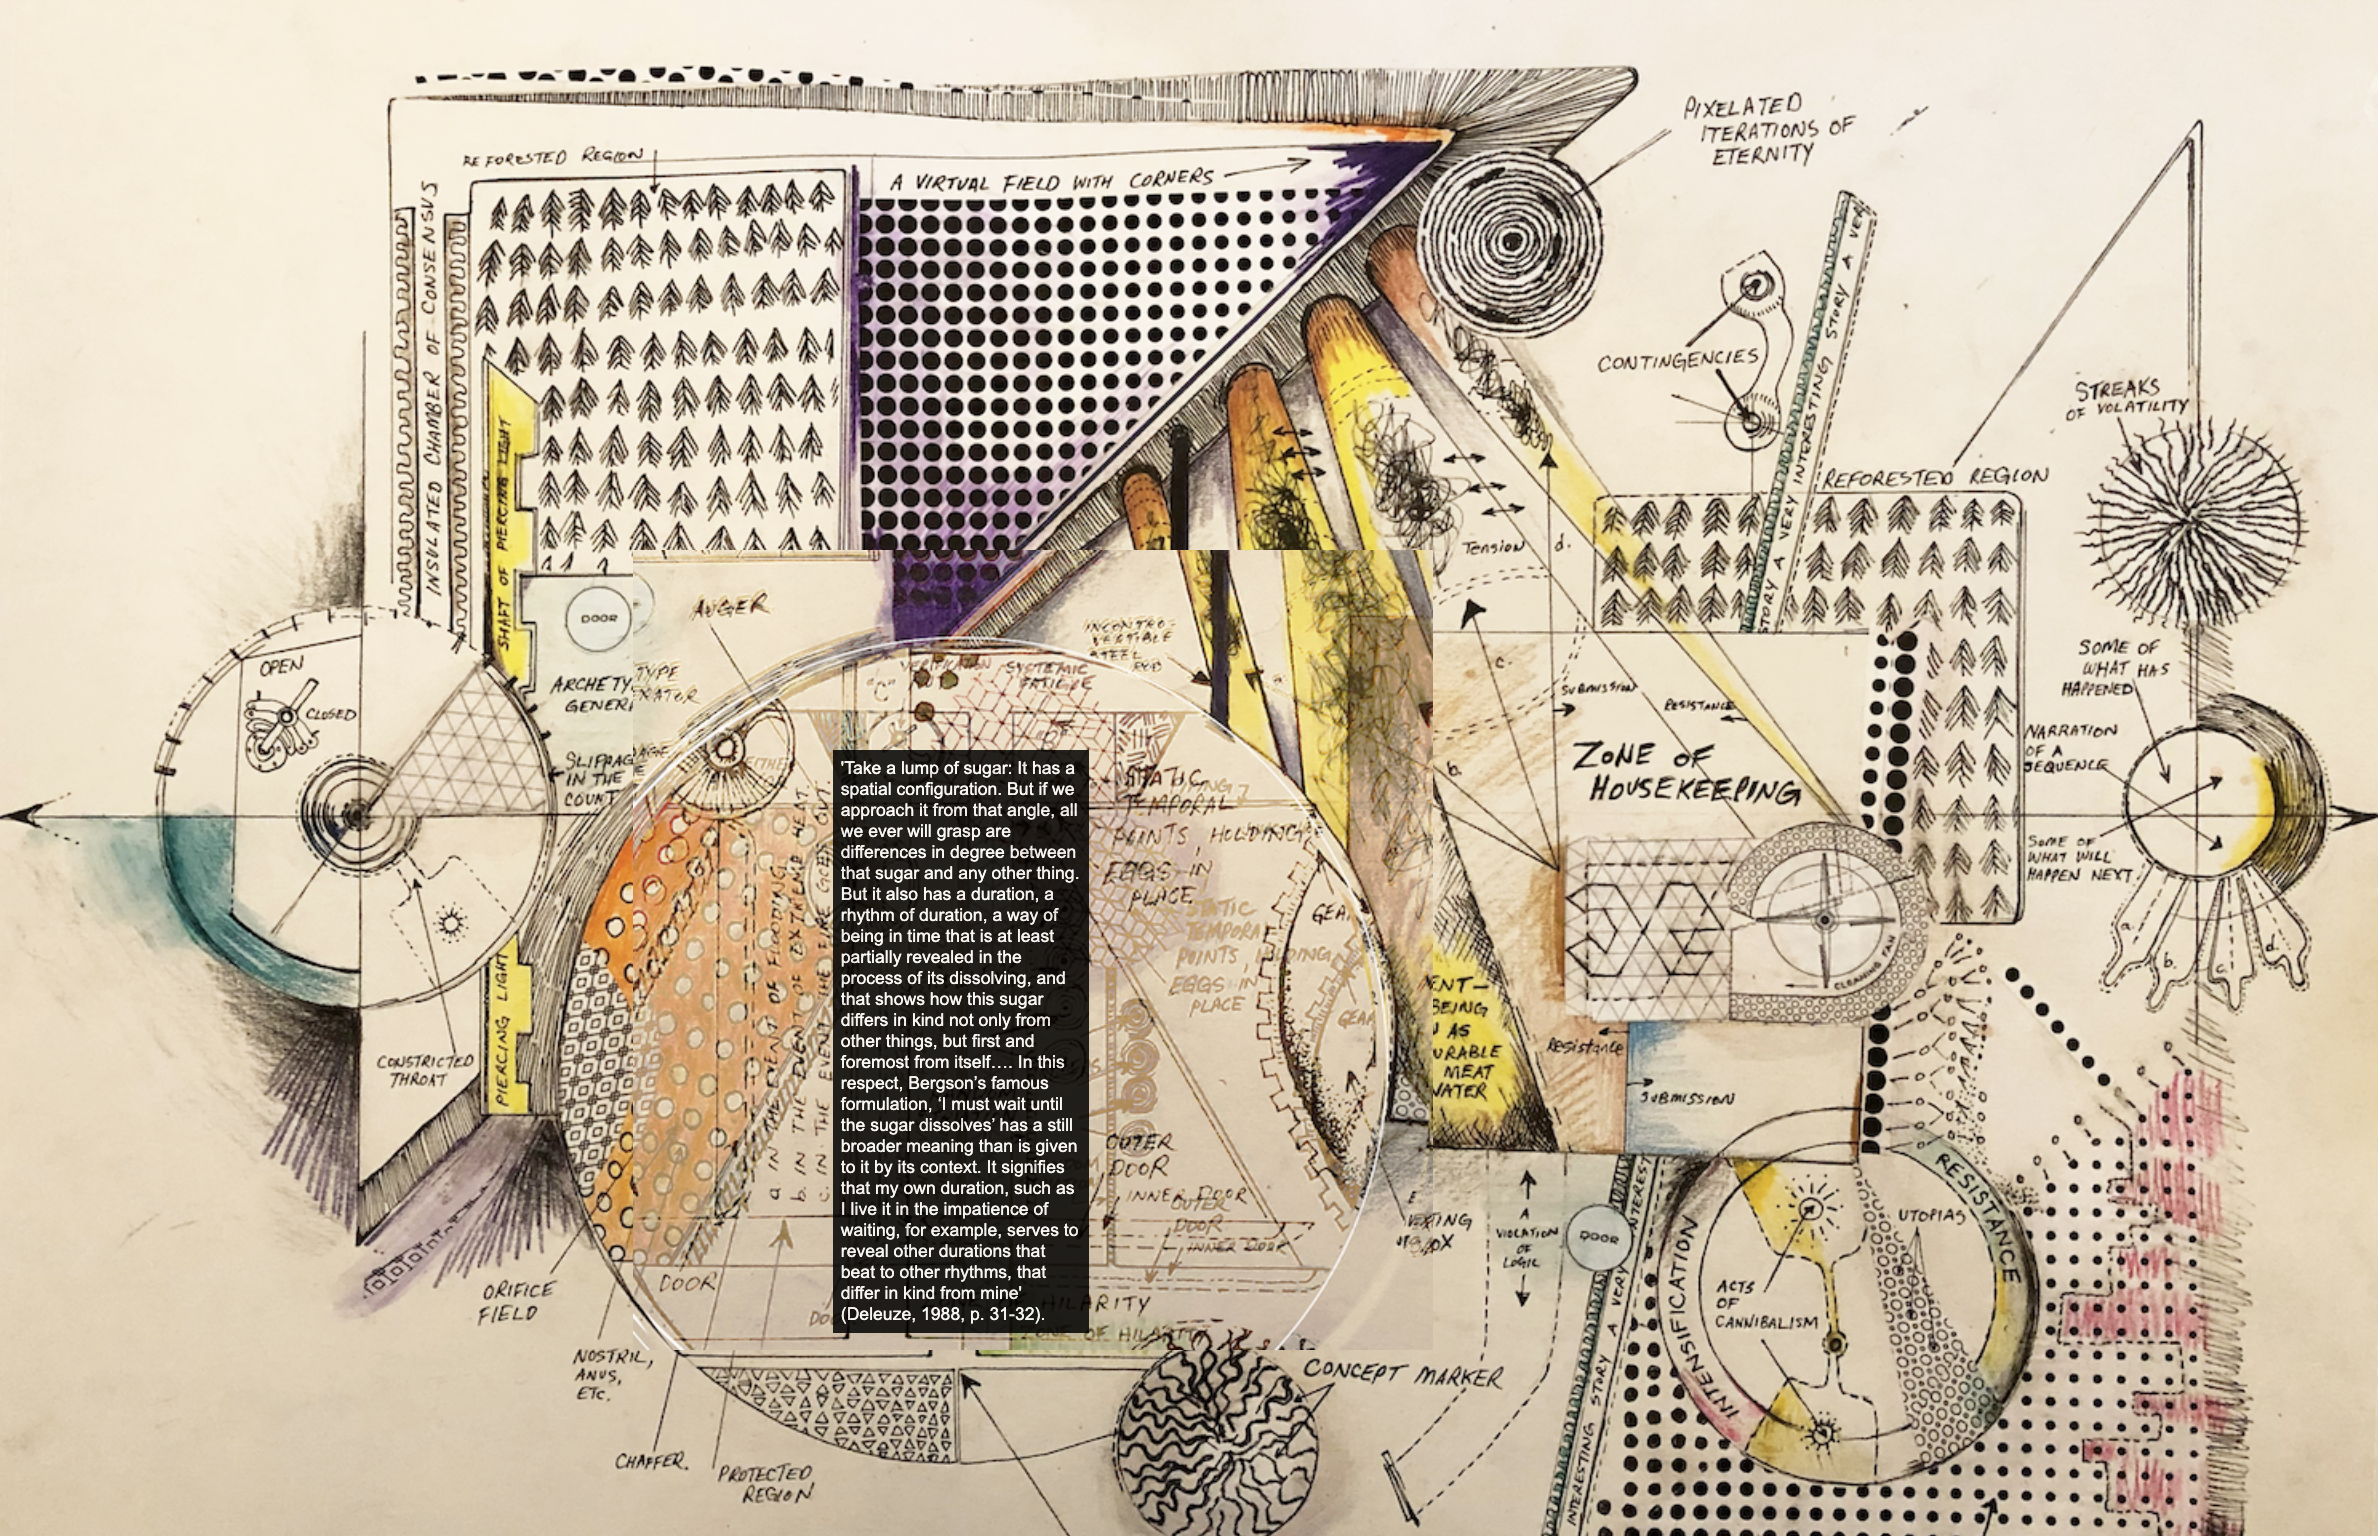 PIXELATED
ITERATIONS OF
ETERNITY
REFORESTED REGION
A VIRTUAL FIELD WITH CORNERS
INSULATED CHAMBER OF CONSENSUS
SHAFT OF PIERCING LIGHT
CONTINGENCIES
STORY A VERY INTERESTING STORY A VERY
STREAKS
OF VOLATILITY
REFORESTED REGION
Tension
d.
DOOR
AUGER
OPEN
CLOSED
SYSTEMIC
c.
SUBMISSION
RESISTANCE
b.
ZONE OF
HOUSEKEEPING
SOME OF
WHAT HAS
HAPPENED
NARRATION
OF A
SEQUENCE
SOME OF
WHAT WILL
HAPPEN NEXT.
a.
b.
c.
d.
STATIC
TEMPORAL
POINTS, HOLDING
EGGS IN
PLACE
STATIC
EGGS IN
PLACE
GEAR
'Take a lump of sugar: It has a
spatial configuration. But if we
approach it from that angle, all
we ever will grasp are
differences in degree between
that sugar and any other thing.
But it also has a duration, a
rhythm of duration, a way of
being in time that is at least
partially revealed in the
process of its dissolving, and
that shows how this sugar
differs in kind not only from
other things, but first and
foremost from itself.... In this
respect, Bergson's famous
formulation, 'I must wait until
the sugar dissolves' has a still
broader meaning than is given
to it by its context. It signifies
that my own duration, such as
I live it in the impatience of
waiting, for example, serves to
reveal other durations that
beat to other rhythms, that
differ in kind from mine'
(Deleuze, 1988, p. 31-32).
a. IN THE EVENT OF FLOODING
b. IN THE EVENT OF EXTREME HEAT
c. IN THE EVENT THE
CLEANING FAN
CONSTRICTED
THROAT
PIERCING LIGHT
ENT—
BEING
AS
URABLE
MEAT
WATER
Resistance
SUBMISSION
OUTER
DOOR
INNER DOOR
OUTER
DOOR
INNER DOOR
DOOR
HILARITY
ZONE OF HILARITY
ORIFICE
FIELD
NOSTRIL,
ANUS,
ETC.
CHAFFER.
PROTECTED
REGION
CONCEPT MARKER
A
VIOLATION
OF
LOGIC
DOOR
INTERESTING STORY A VERY INTEREST
INTENSIFICATION
RESISTANCE
UTOPIAS
ACTS
OF
CANNIBALISM